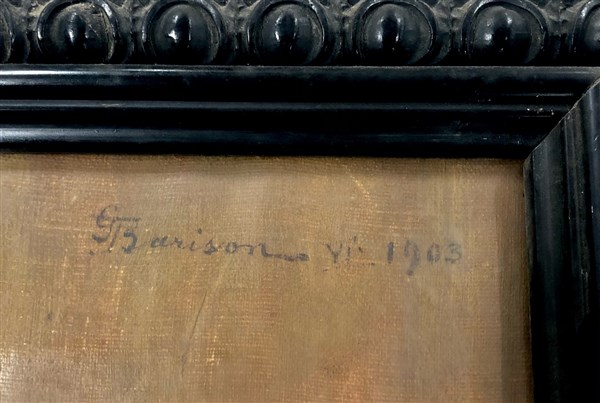 GBarison VI 1903